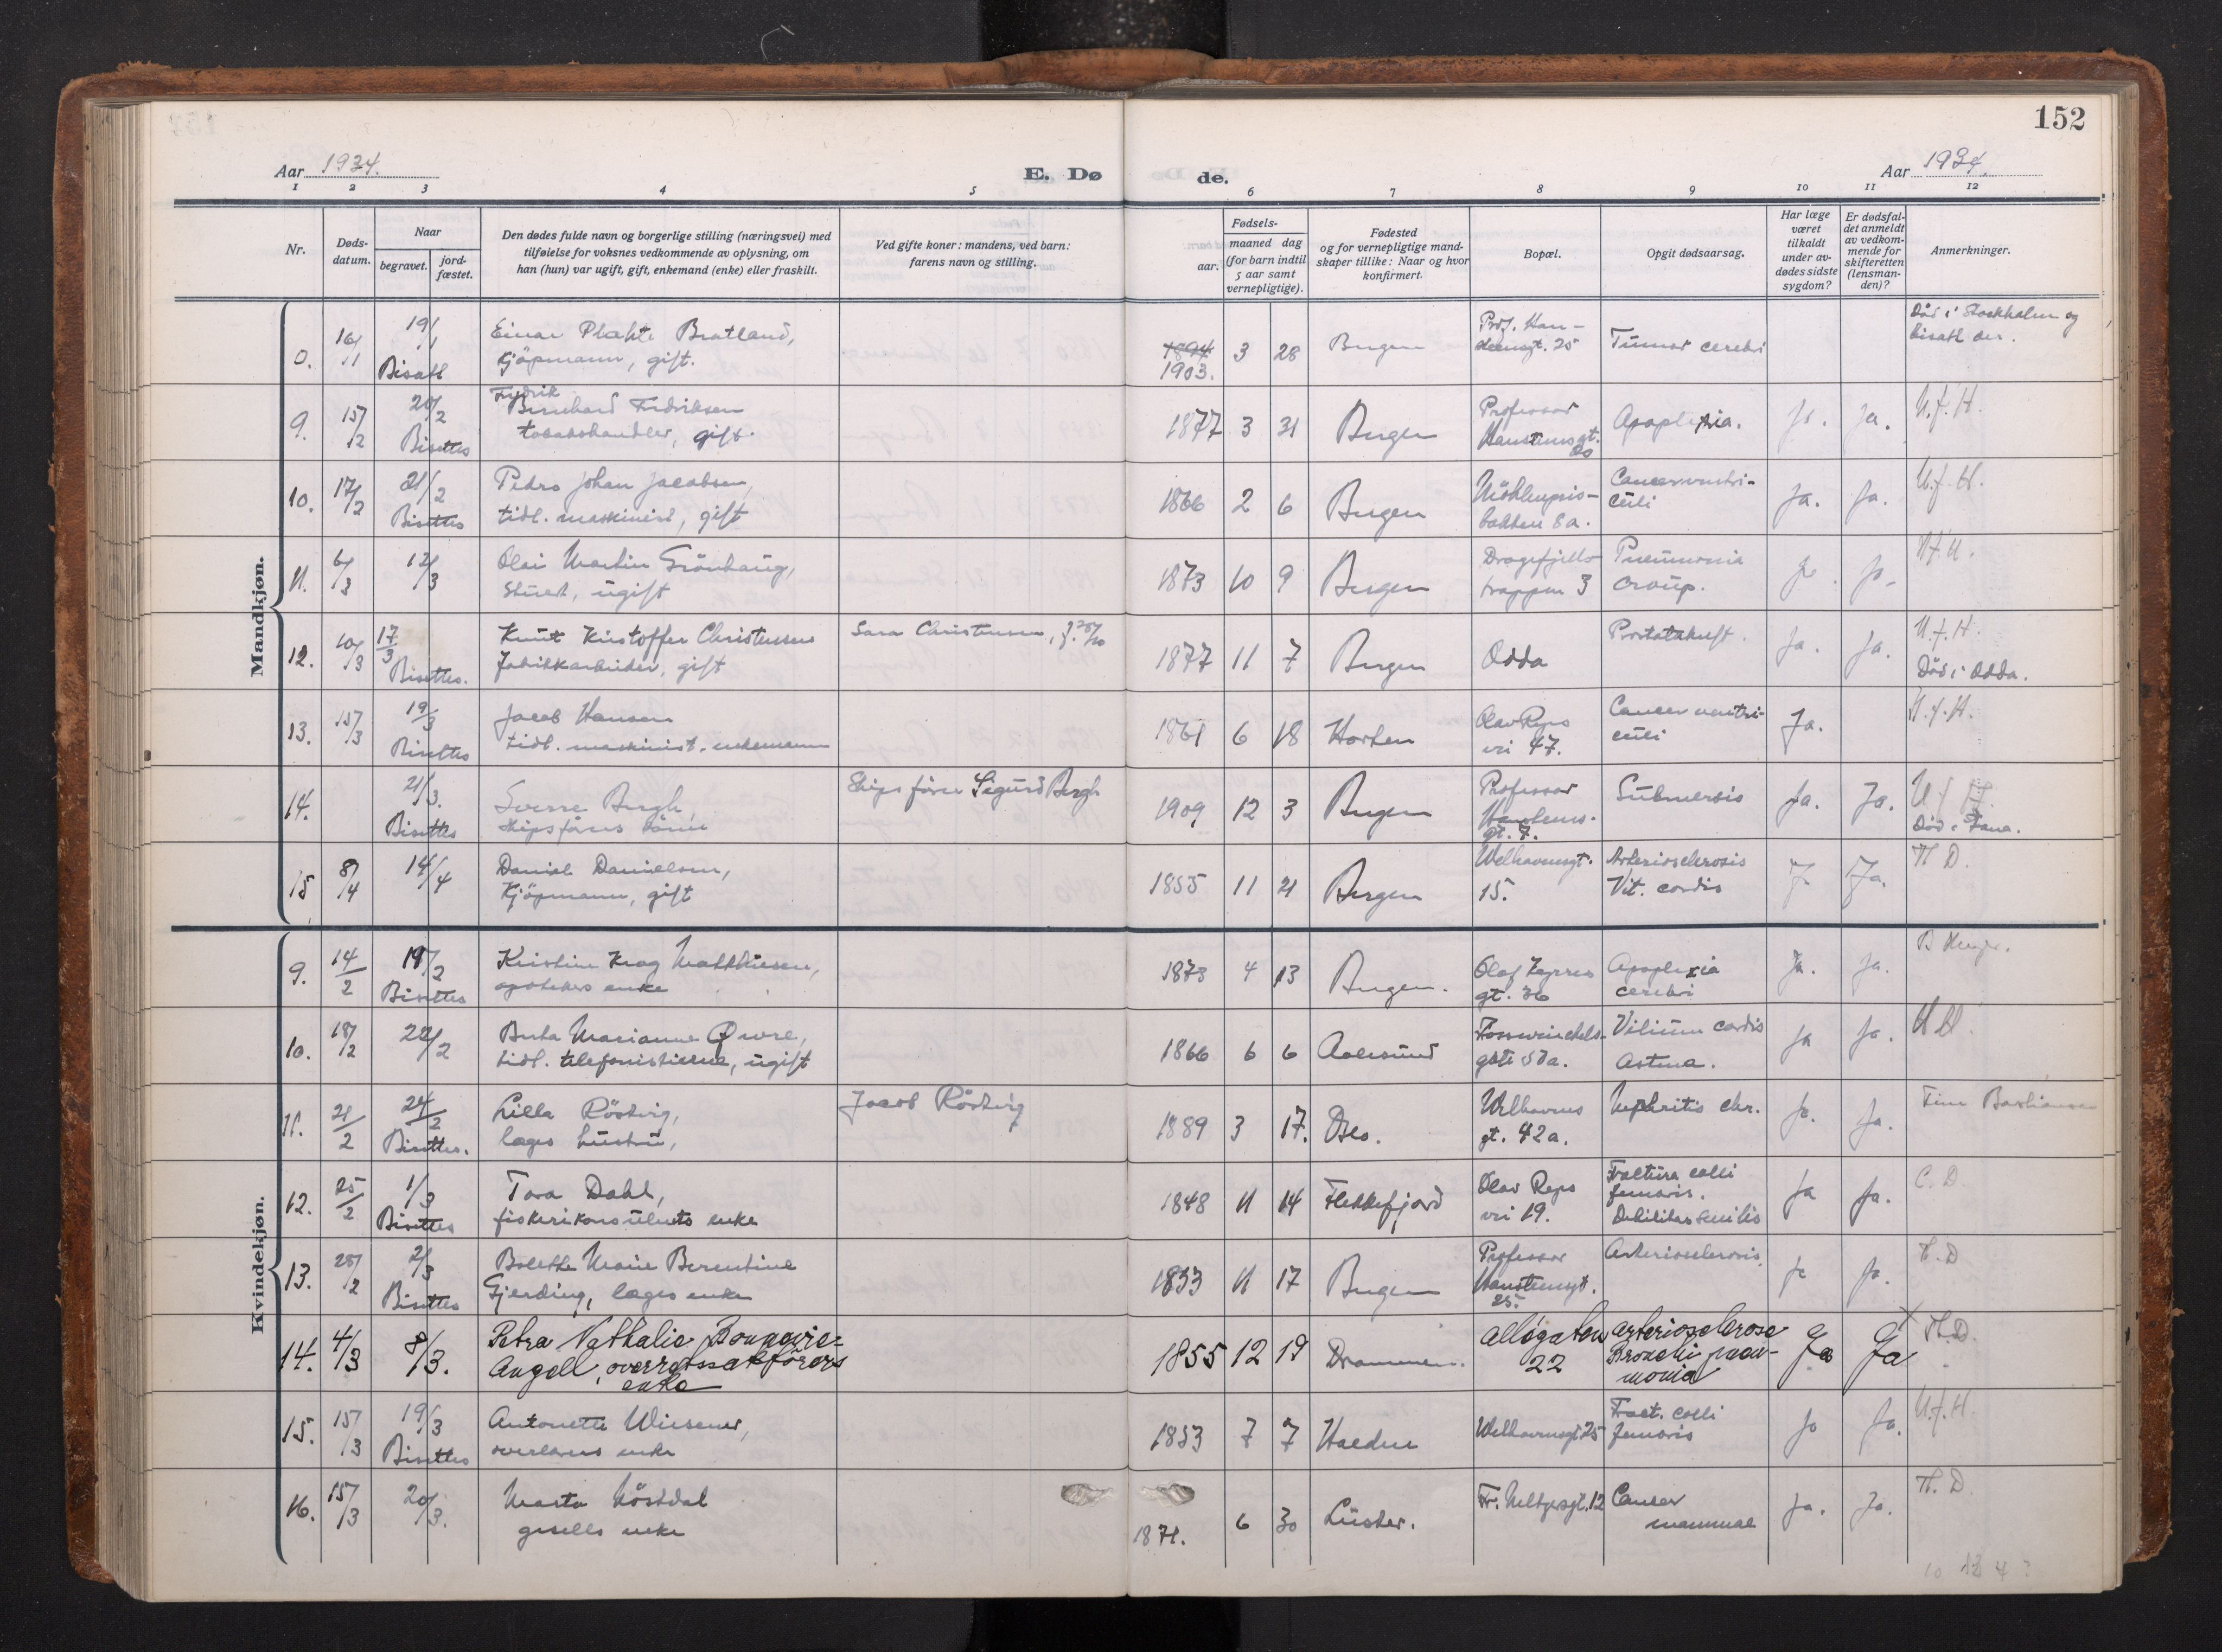 152
Aar 1934.
E. Dø
de.
Aar 1934.
1 2 3 4 5 6 7 8 9 10 11 12
Nr.
Døds-
datum.
Naar
begravet.
jord-
fæstet.
Den dødes fulde navn og borgerlige stilling (næringsvei) med
tilføielse for voksnes vedkommende av oplysning, om
han (hun) var ugift, gift, enkemand (enke) eller fraskilt.
Ved gifte koner: mandens, ved barn:
farens navn og stilling.
Fødsels-
aar.
maaned dag
(for barn indtil
5 aar samt
vernepligtige).
Fødested
og for vernepligtige mand-
skaper tillike: Naar og hvor
konfirmert.
Bopæl.
Opgit dødsaarsag.
Har læge
været
tilkaldt
under av-
dødes sidste
sygdom?
Er dødsfal-
det anmeldt
av vedkom-
mende for
skifteretten
(lensman-
den)?
Anmerkninger.
Mandkjøn.
0. 16/1 19/1 Einar Plahte Bratland, 1894 3 28 Bergen Prof. Han- Tumor cerebri Död i Stockholm og
Bisatt kjöpmann, gift. 1903. steensgt. 25 bisatt der.
Fredrik
9. 15/2 20/2 Bernhard Fredriksen 1877 3 31 Bergen Professor Apoplexia. Ja. Ja. U.f.H.
Bisettes tobakshandler, gift. Hansteensgt.
10. 17/2 21/2 Pedro Johan Jacobsen, 1866 2 6 Bergen Möhlenpris- Cancer ventri- Ja. Ja. U.f.H.
Bisettes tidl. maskinist, gift bakken 8a. culi
11. 6/3 12/3 Olai Martin Grönhaug, 1873 10 9 Bergen Dragefjells- Pneumonia Ja. Ja. U.f.H.
Stuert, ugift trappen 3 croup.
12. 10/3 17/3 Knut Kristoffer Christensen Sara Christensen, f. 1877 11 7 Bergen Odda Ja. Ja. U.f.H.
Bisettes. Fabrikkarbeider, gift Död i Odda.
13. 15/3 19/3 Jacob Hansen 1861 6 18 Horten Olav Ryes Cancer ventri- Ja. U.f.H.
Bisettes tidl. maskinist, enkemann vei 47. culi
14. 21/3. Sverre Bergh, Skipsförer Sigurd Bergh 1909 12 3 Bergen Professor Submersis Ja. Ja. U.f.H.
Bisettes skipsförers sönn Hansteens- Död i Fana.
gt. 7.
15 8/4 14/4 Daniel Danielsen, 1855 11 21 Bergen Welhavensgt. Arteriosclerosis Ja Ja. Th D.
Kjöpmann, gift 15. Vit. cordis
Kvindekjøn.
9. 14/2 19/2 Kristine Krag Matthiesen, 1873 4 13 Bergen. Olaf Ryes Apoplexia Ja. Ja.
Bisettes apotekers enke gt. 36 cerebri
10. 18/2 22/2 Berta Marianne Qvore, 1866 6 6 Aalesund Fosswinckels- Vitium cordis Ja Ja.
tidl. telefonistinne, ugift gate 50a. Astma.
11. 21/2 24/2 Lilla Rösberg, Jacob Rösberg 1889 3 17. Oslo. Welhavens Nephritis chr. Ja. Ja.
Bisettes. læges hustru, gt. 42a.
12. 25/2 1/3 Tora Dahl, 1848 11 14 Flekkefjord Olav Ryes Fractura colli Ja Ja. C. D
Bisettes fiskerikonsulents enke vei 19. femoris.
Debilitas senilis
13. 25/2 2/3 Bolette Marie Berentine 1853 11 17 Bergen Professor Arteriosclerosis. Ja Ja. T. D
Bisettes Gjerding, læges enke Hansteensgt.
25.
14. 4/3 8/3. Petra Nathalie Bonnevie- 1855 12 19 Drammen. Allégaten arteriosclerose Ja Ja Th.D.
Angell, overretssakförers 22 Bronchi pneu-
enke monia
15. 15/3 19/3 Antonette Wiesener, 1853 7 7 Halden Welhavensgt 25 Fract. colli Ja Ja. U.f.H.
Bisettes overlærers enke femoris
16. 15/3 20/3. Marta Höstdal 1871. 6 30 Luster. Fr. Meltzersgt. 12 Cancer Ja. Ja. Th. D.
gesells enke mammae